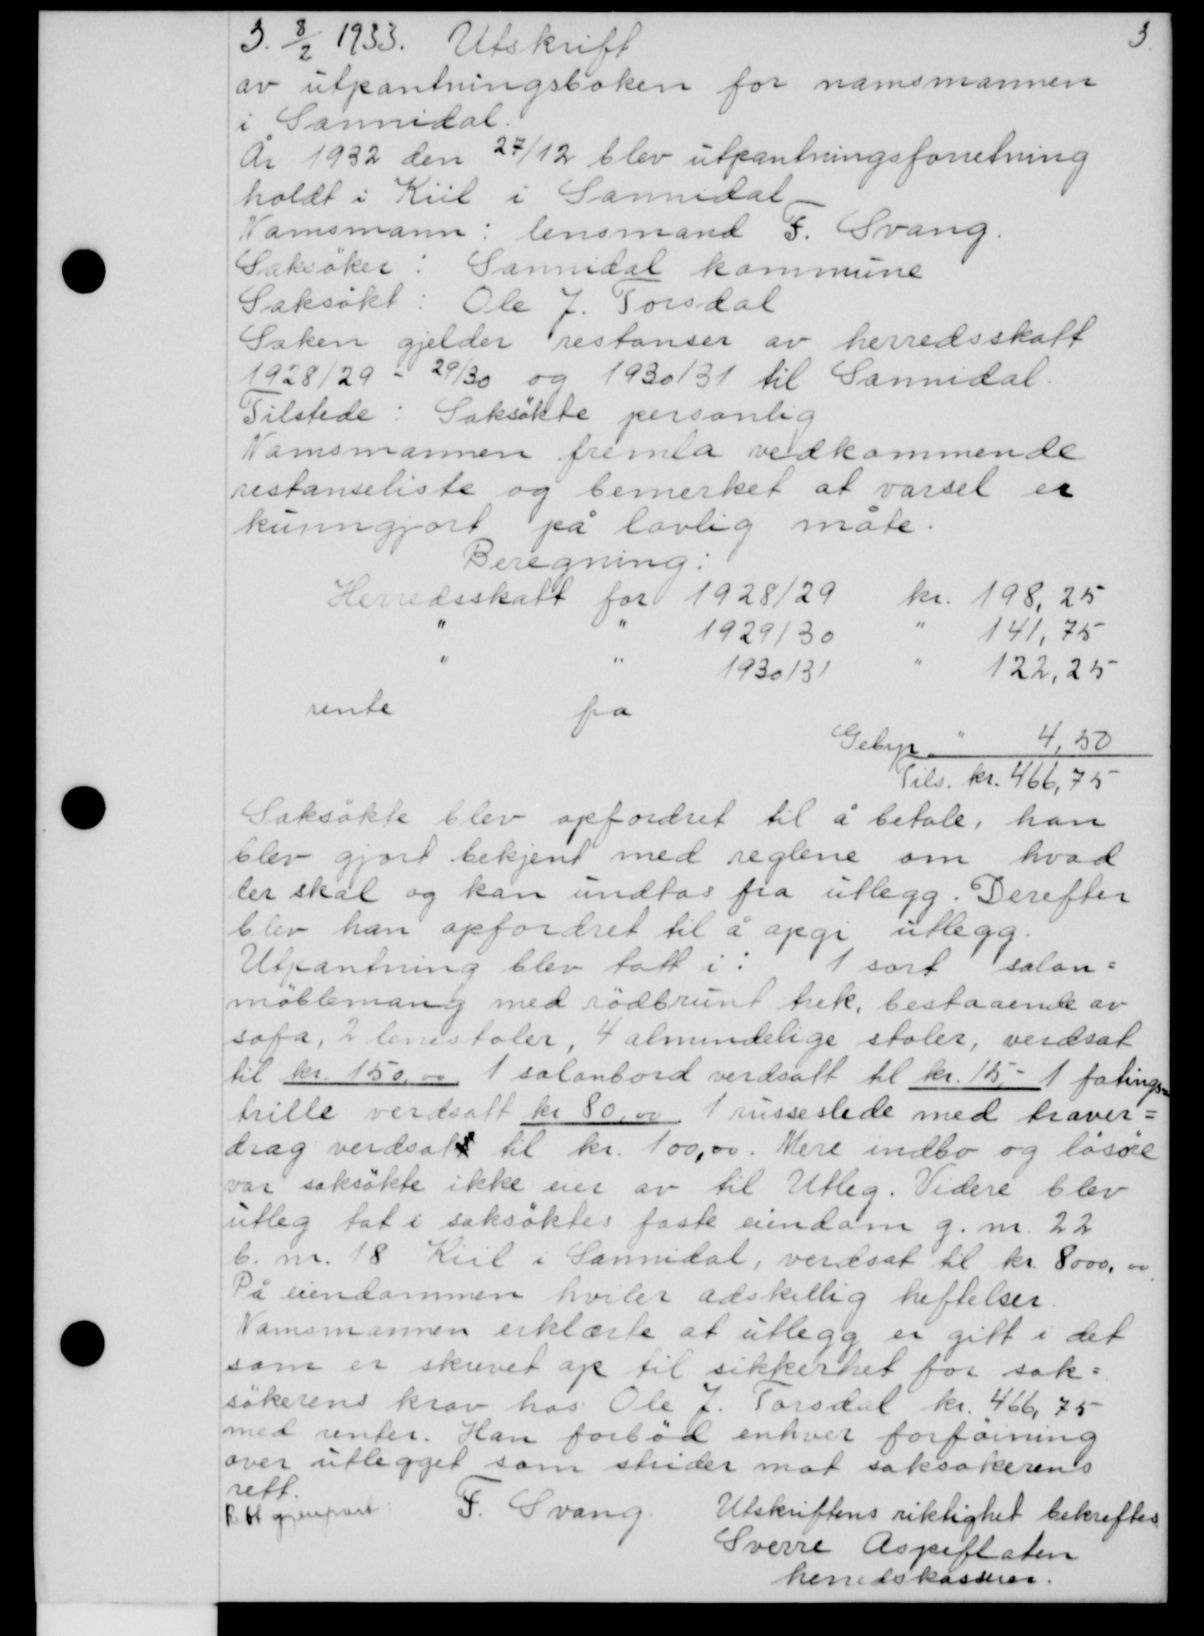 3. 8/2 1933. Utskrift 3.
av utpantningsboken for namsmannen
i Sannidal.
År 1932 den 27/12 blev utpantningsforretning
holdt i Kiil i Sannidal
Namsmann: lensmand F. Svang.
Saksøker: Sannidal kommune
Saksøkt: Ole J. Torsdal
Saken gjelder restanser av herredsskatt
1928/29 - 29/30 og 1930/31 til Sannidal.
Tilstede: Saksøkte personlig
Namsmannen fremla vedkommende
restanseliste og bemerket at varsel er
kunngjort på lovlig måte.
Beregning:
Herredsskatt for 1928/29 kr. 198,25
" " 1929/30 " 141,75
" " 1930/31 " 122,25
rente fra
Gebyr " 4,50
Tils. kr. 466,75
Saksøkte blev opfordret til å betale, han
blev gjort bekjent med reglene om hvad
der skal og kan undtas fra utlegg. Derefter
blev han opfordret til å opgi utlegg.
Utpantning blev tatt i: 1 sort salon=
møblemang med rødbrunt trek, bestaaende av
sofa, 2 lenestoler, 4 almindelige stoler, verdsat
til kr. 150,00 1 salonbord verdsatt til kr. 15,- 1 fatings=
trille verdsatt kr 80,00. 1 russeslede med traver=
drag verdsatt til kr. 100,00. Mere indbo og løsøre
var saksøkte ikke eier av til Utleg. Videre blev
utleg tat i saksøktes faste eiendom g. nr. 22
b. nr. 18 Kiil i Sannidal, verdsat til kr. 8000,00.
På eiendommen hviler adskillig heftelser.
Namsmannen erklærte at utlegg er gitt i det
som er skrevet op til sikkerhet for sak=
søkerens krav hos Ole J. Torsdal kr. 466,75
med renter. Han forbød enhver forføining
over utlegget som strider mot saksøkerens
rett.
F. Svang. Utskriftens riktighet bekreftes
gjenpart.
Sverre Aspeflaten
herredskasserer.